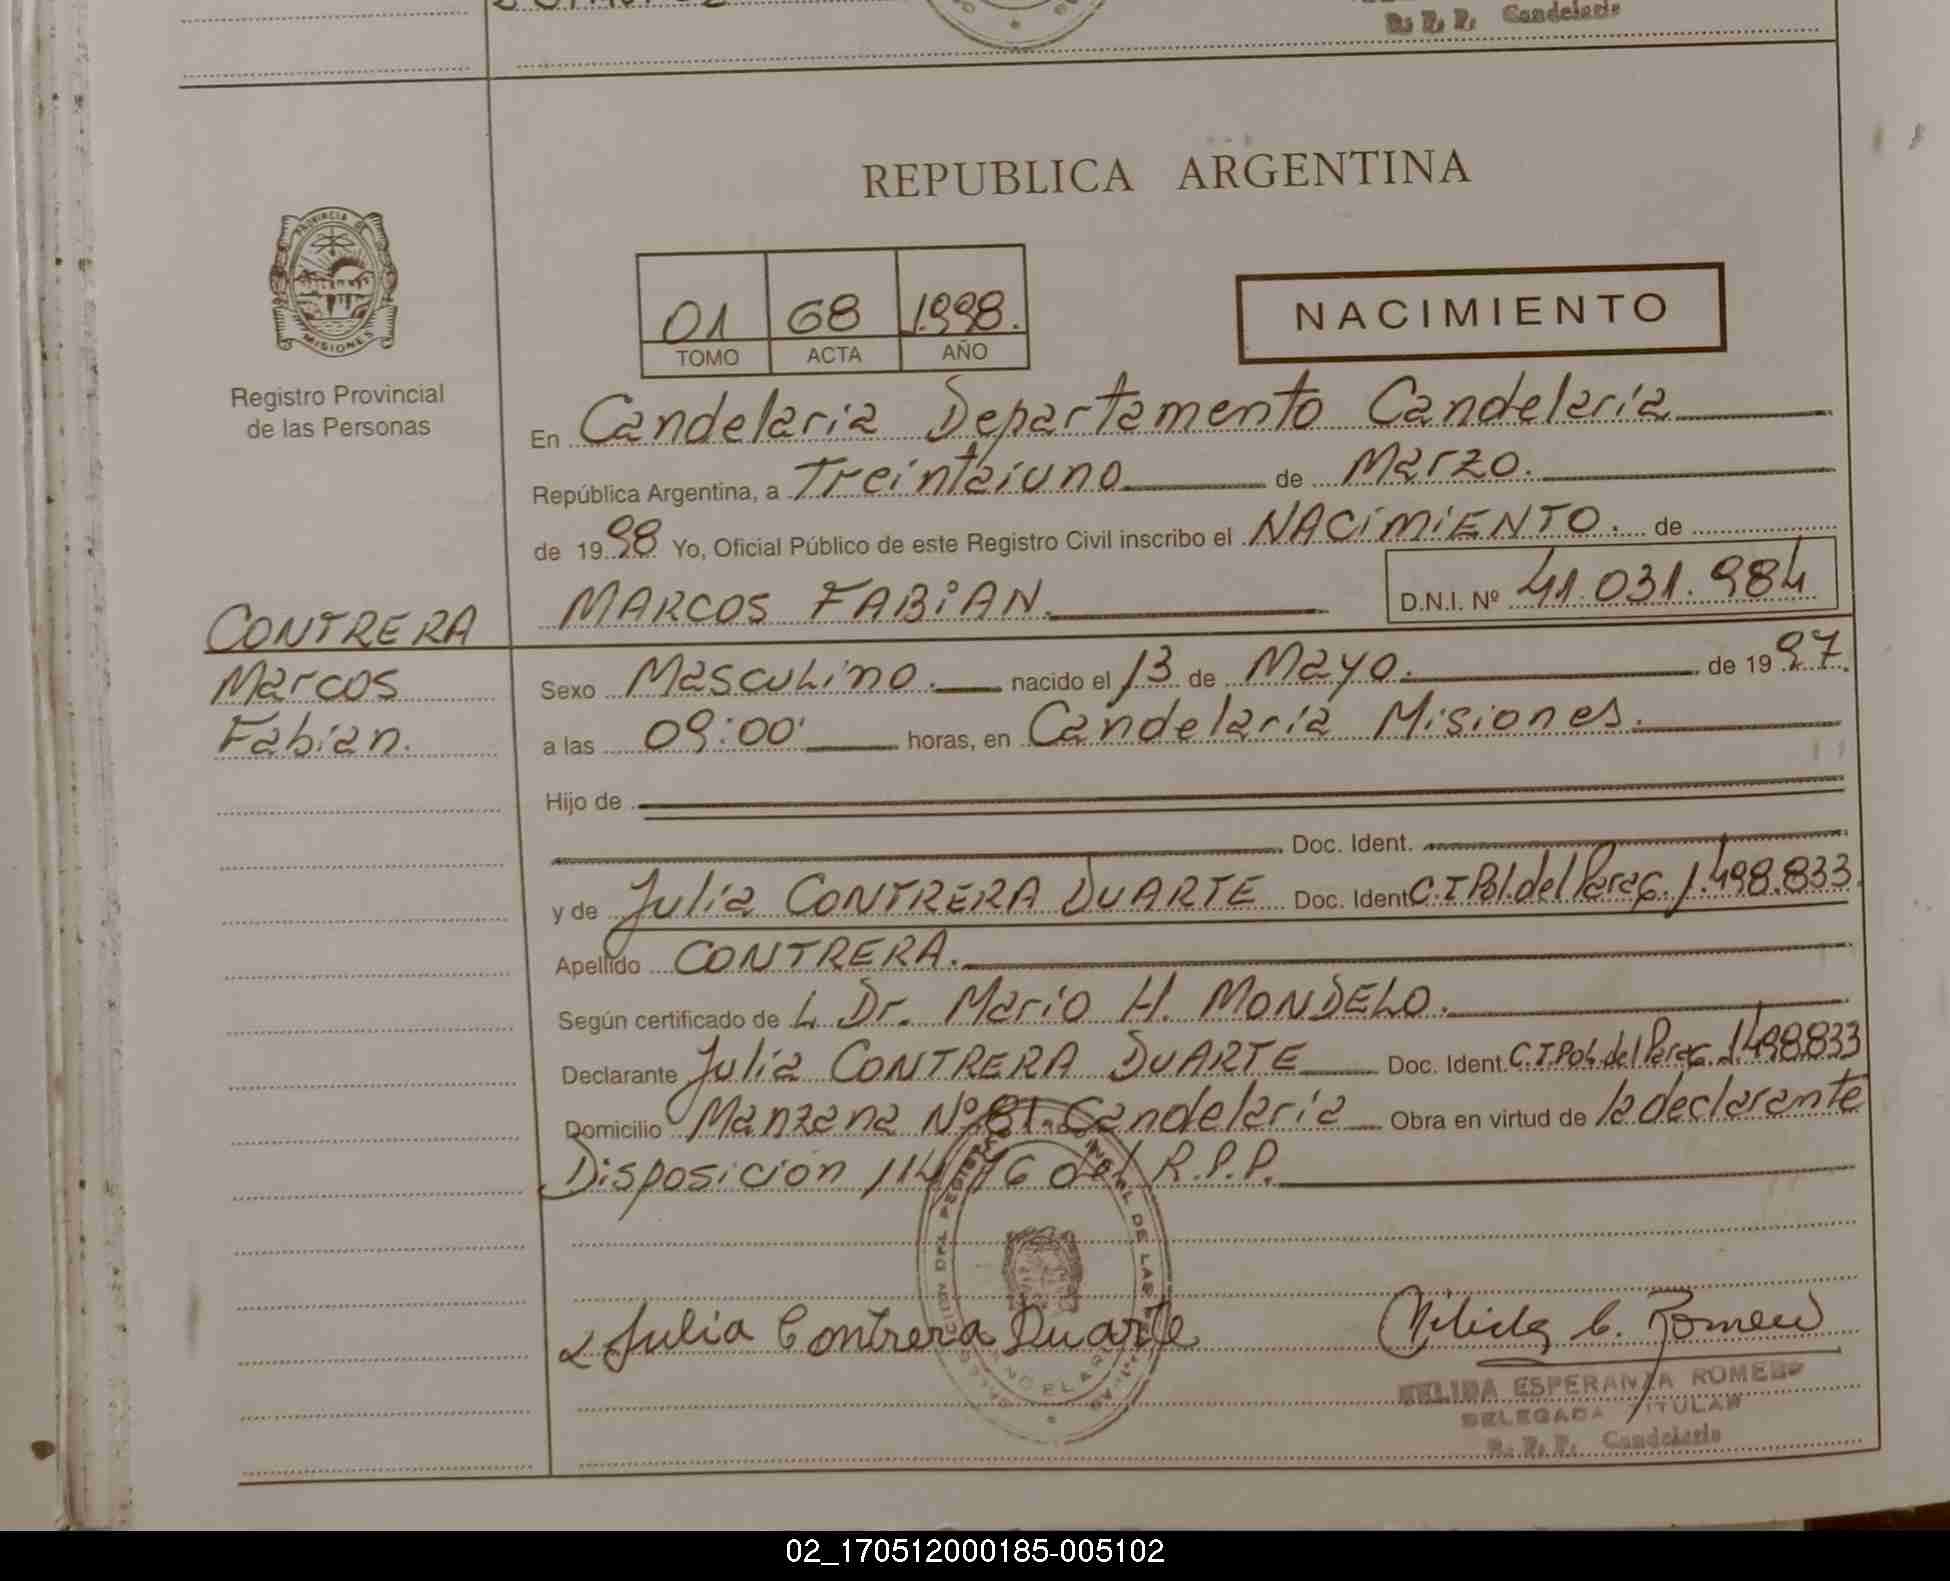 R. P. P. Candelaria
REPUBLICA ARGENTINA
PROVINCIA DE
MISIONES
01 68 1.998.
TOMO ACTA AÑO
NACIMIENTO
Registro Provincial
de las Personas
En Candelaria Departamento Candelaria
República Argentina, a Treintaiuno de Marzo.
de 19 98 Yo, Oficial Público de este Registro Civil inscribo el NACIMIENTO. de
MARCOS FABIAN. D.N.I. Nº 41.031.984
CONTRERA
Marcos
Fabian.
Sexo Masculino. nacido el 13 de Mayo. de 19 97.
a las 09:00' horas, en Candelaria Misiones.
Hijo de
Doc. Ident.
y de Julia CONTRERA DUARTE Doc. Ident C.I Pol. del Parag. 1.498.833
Apellido CONTRERA.
Según certificado de L Dr. Mario H. MONDELO.
Declarante Julia CONTRERA DUARTE Doc. Ident. C.I.Pol. del Parag. 1.498.833
Domicilio Manzana Nº 81. Candelaria Obra en virtud de la declarante
Disposición 114/76 del R.P.P.
Julia Contrera Duarte
Nélida E. Romero
NELIDA ESPERANZA ROMERO
DELEGADA TITULAR
R. P. P. Candelaria
02_170512000185-005102